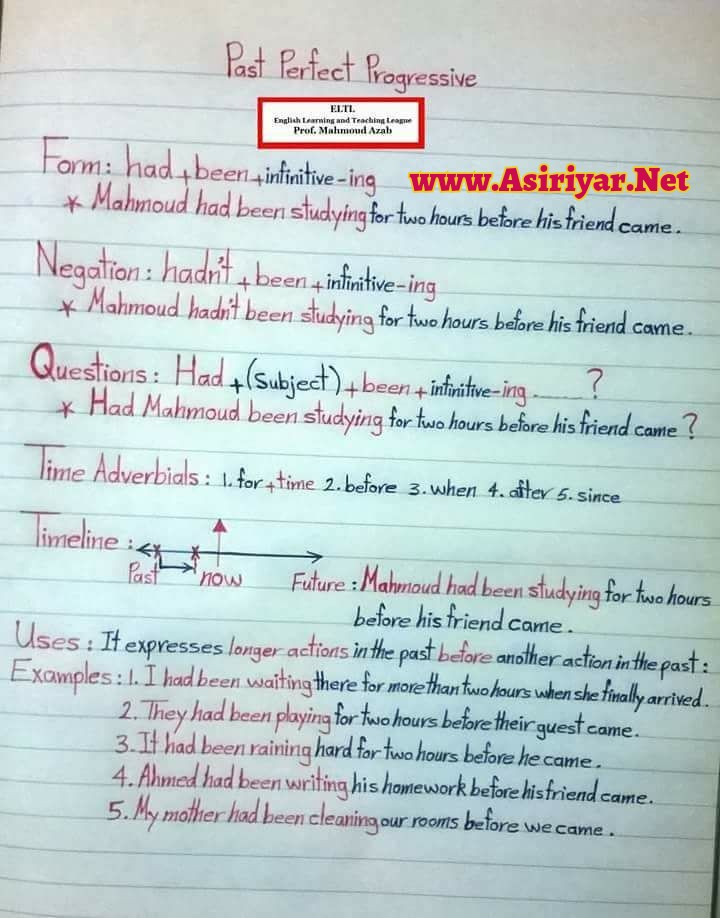 Past Perfect Progressive
ELTL
English Learning and Teaching League
Prof. Mahmoud Azab
Form: had + been + infinitive-ing
www.Asiriyar.Net
* Mahmoud had been studying for two hours before his friend came.
Negation: hadn't + been + infinitive-ing
* Mahmoud hadn't been studying for two hours before his friend came.
Questions: Had + (subject) + been + infinitive-ing ......... ?
* Had Mahmoud been studying for two hours before his friend came?
Time Adverbials: 1. for + time 2. before 3. when 4. after 5. since
Timeline:
Past now Future: Mahmoud had been studying for two hours
before his friend came.
Uses: It expresses longer actions in the past before another action in the past:
Examples: 1. I had been waiting there for more than two hours when she finally arrived.
2. They had been playing for two hours before their guest came.
3. It had been raining hard for two hours before he came.
4. Ahmed had been writing his homework before his friend came.
5. My mother had been cleaning our rooms before we came.